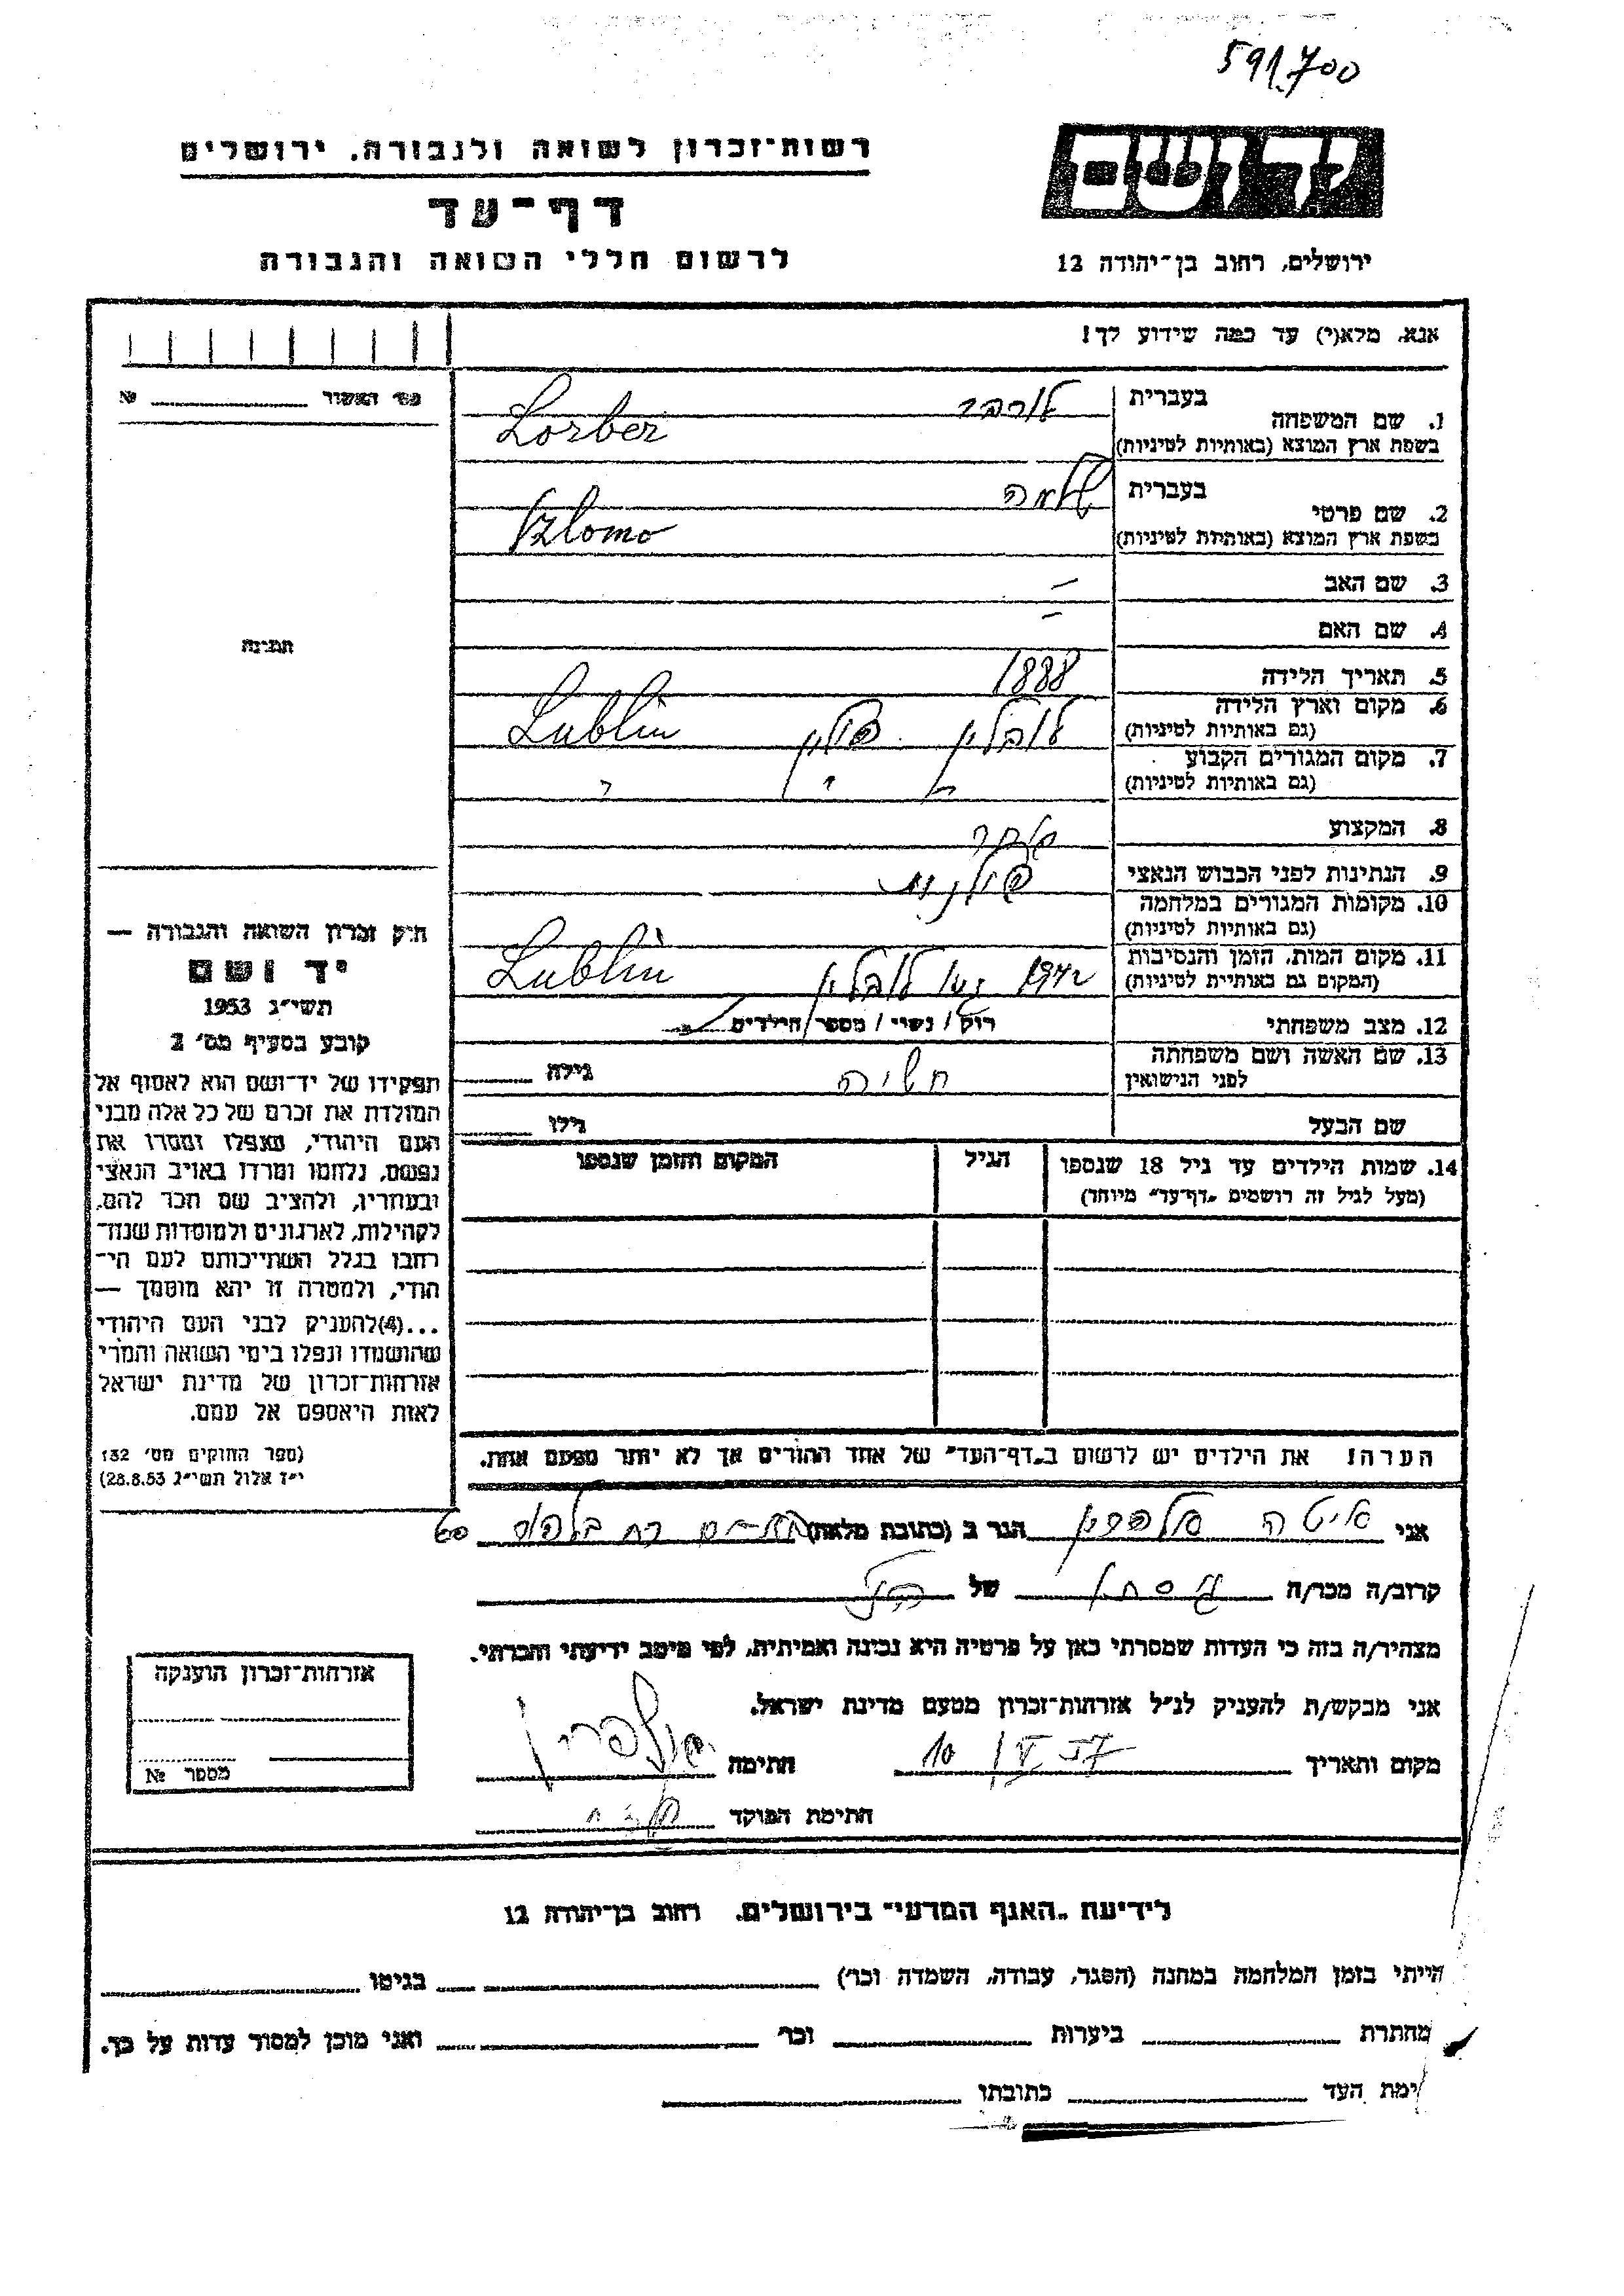 591.700
רשות־זכרון לשואה ולגבורה, ירושלים
דף־עד
לרשום חללי השואה והגבורה
יד ושם
ירושלים, רחוב בן־יהודה 12
אנא, מלא(י) עד כמה שידוע לך!
מס' האשור №
תמונה
1. שם המשפחה
בעברית
לורבר
בשפת ארץ המוצא (באותיות לטיניות)
Lorber
2. שם פרטי
בעברית
שלמה
בשפת ארץ המוצא (באותיות לטיניות)
Szlomo
3. שם האב –
4. שם האם –
5. תאריך הלידה 1888
6. מקום וארץ הלידה
(גם באותיות לטיניות)
לובלין פולין Lublin
7. מקום המגורים הקבוע
(גם באותיות לטיניות)
" " "
8. המקצוע סוחר
9. הנתינות לפני הכבוש הנאצי פולנית
10. מקומות המגורים במלחמה
(גם באותיות לטיניות)
11. מקום המות, הזמן והנסיבות
(המקום גם באותיות לטיניות)
1942 גטו לובלין Lublin
12. מצב משפחתי רוק / נשוי / מספר הילדים
13. שם האשה ושם משפחתה
לפני הנישואין
גילה
שם הבעל גילו
14. שמות הילדים עד גיל 18 שנספו הגיל המקום והזמן שנספו
(מעל לגיל זה רושמים „דף־עד״ מיוחד)
הערה! את הילדים יש לרשום ב„דף־העד״ של אחד ההורים אך לא יותר מפעם אחת.
חוק זכרון השואה והגבורה —
יד ושם
תשי״ג 1953
קובע בסעיף מס׳ 2
תפקידו של יד־ושם הוא לאסוף אל
המולדת את זכרם של כל אלה מבני
העם היהודי, שנפלו ומסרו את
נפשם, נלחמו ומרדו באויב הנאצי
ובעוזריו, ולהציב שם וזכר להם,
לקהילות, לארגונים ולמוסדות שנח־
רבו בגלל השתייכותם לעם הי־
הודי, ולמטרה זו יהא מוסמך —
...(4)להעניק לבני העם היהודי
שהושמדו ונפלו בימי השואה והמרי
אזרחות־זכרון של מדינת ישראל
לאות היאספם אל עמם.
(ספר החוקים מס׳ 132
י״ז אלול תשי״ג 28.8.53)
אני איטה הגר ב (כתובת מלאה) רח 60
קרוב/ה מכר/ה של
מצהיר/ה בזה כי העדות שמסרתי כאן על פרטיה היא נכונה ואמיתית, לפי מיטב ידיעתי והכרתי.
אני מבקש/ת להעניק לנ״ל אזרחות־זכרון מטעם מדינת ישראל.
מקום ותאריך 10/V 57 חתימה
חתימת הפוקד
אזרחות־זכרון הוענקה
מספר №
לידיעת „האגף המדעי״ בירושלים, רחוב בן־יהודה 12
הייתי בזמן המלחמה במחנה (הסגר, עבודה, השמדה וכו׳) בגיטו
מחתרת ביערות וכו׳ ואני מוכן למסור עדות על כך.
ימת העד כתובתו